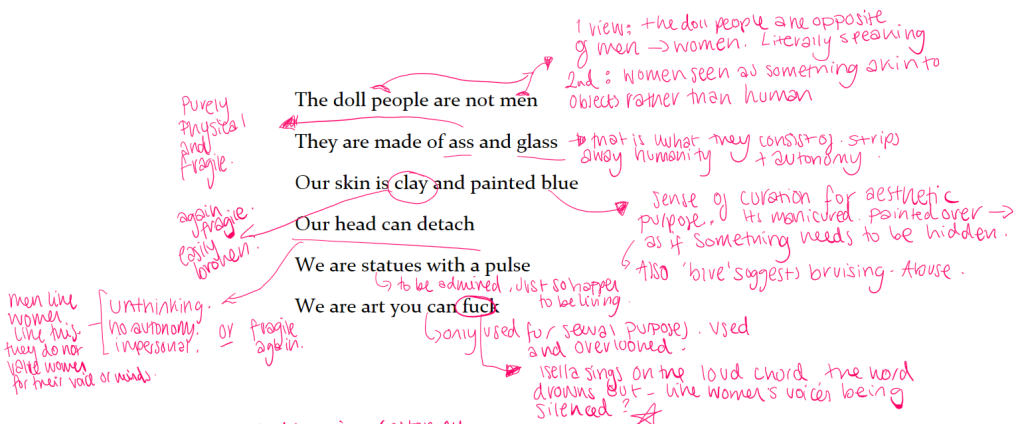 1 view: the doll people are opposite
of men → women. Literally speaking
2nd: women seen as something akin to
objects rather than human
The doll people are not men
Purely
Physical
and
fragile.
They are made of ass and glass
→ that is what they consist of. strips
away humanity + autonomy.
Our skin is clay and painted blue
again
fragile.
easily
broken.
sense of curation for aesthetic
purpose. Its manicured. painted over →
as if something needs to be hidden.
Also 'blue' suggests bruising. Abuse.
Our head can detach
unthinking.
no autonomy.
impersonal.
or fragile
again.
men like
women
like this
they do not
value women
for their voice or minds.
We are statues with a pulse
to be admired, just so happen
to be living.
We are art you can fuck
only used for sexual purposes. Used
and overlooked.
Isella sings on the loud chord the word
drowns out - like women's voices being
silenced?